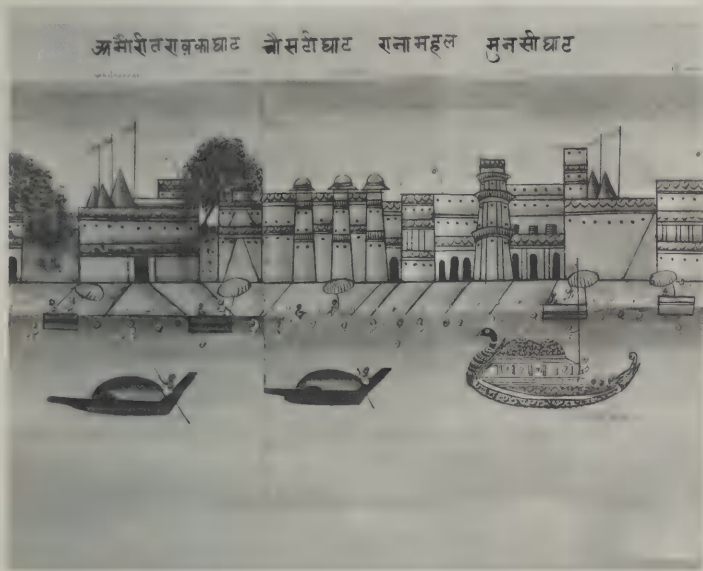 अंमीरीतरावकाघाट चौसटीघाट रानामहल मुनसीघाट